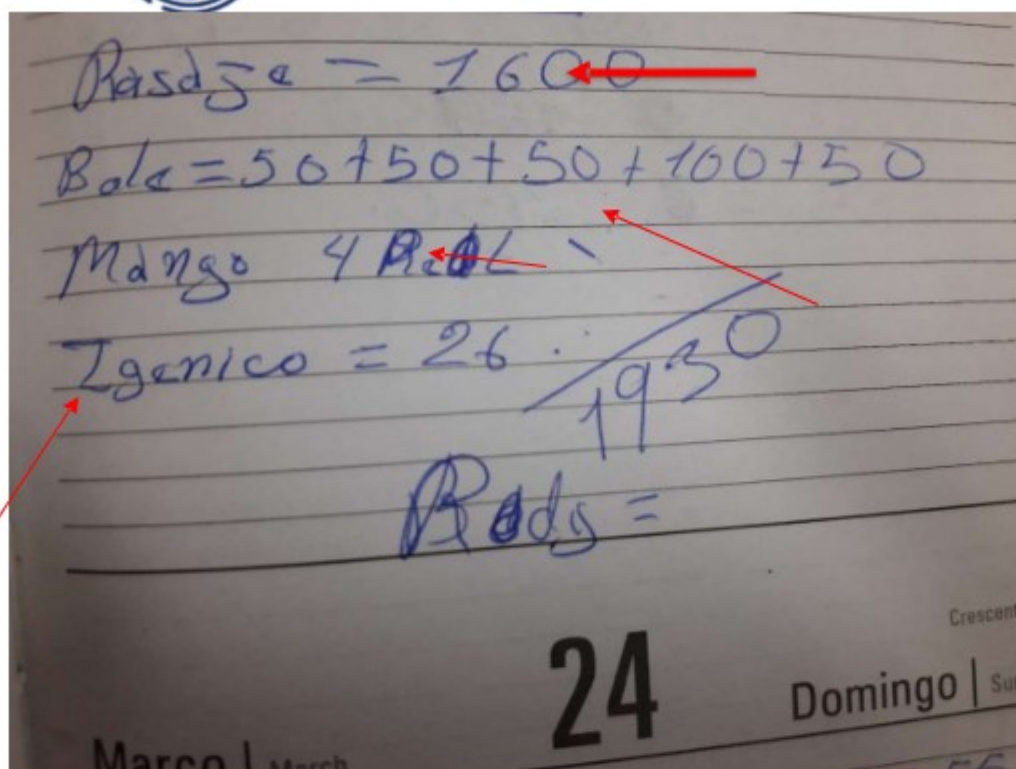 Pasaje = 1600
Bale = 50+50+50+100+50
Mango 4 Real
Igenico = 26
1930
=
24
Crescent
Domingo |
Março | March